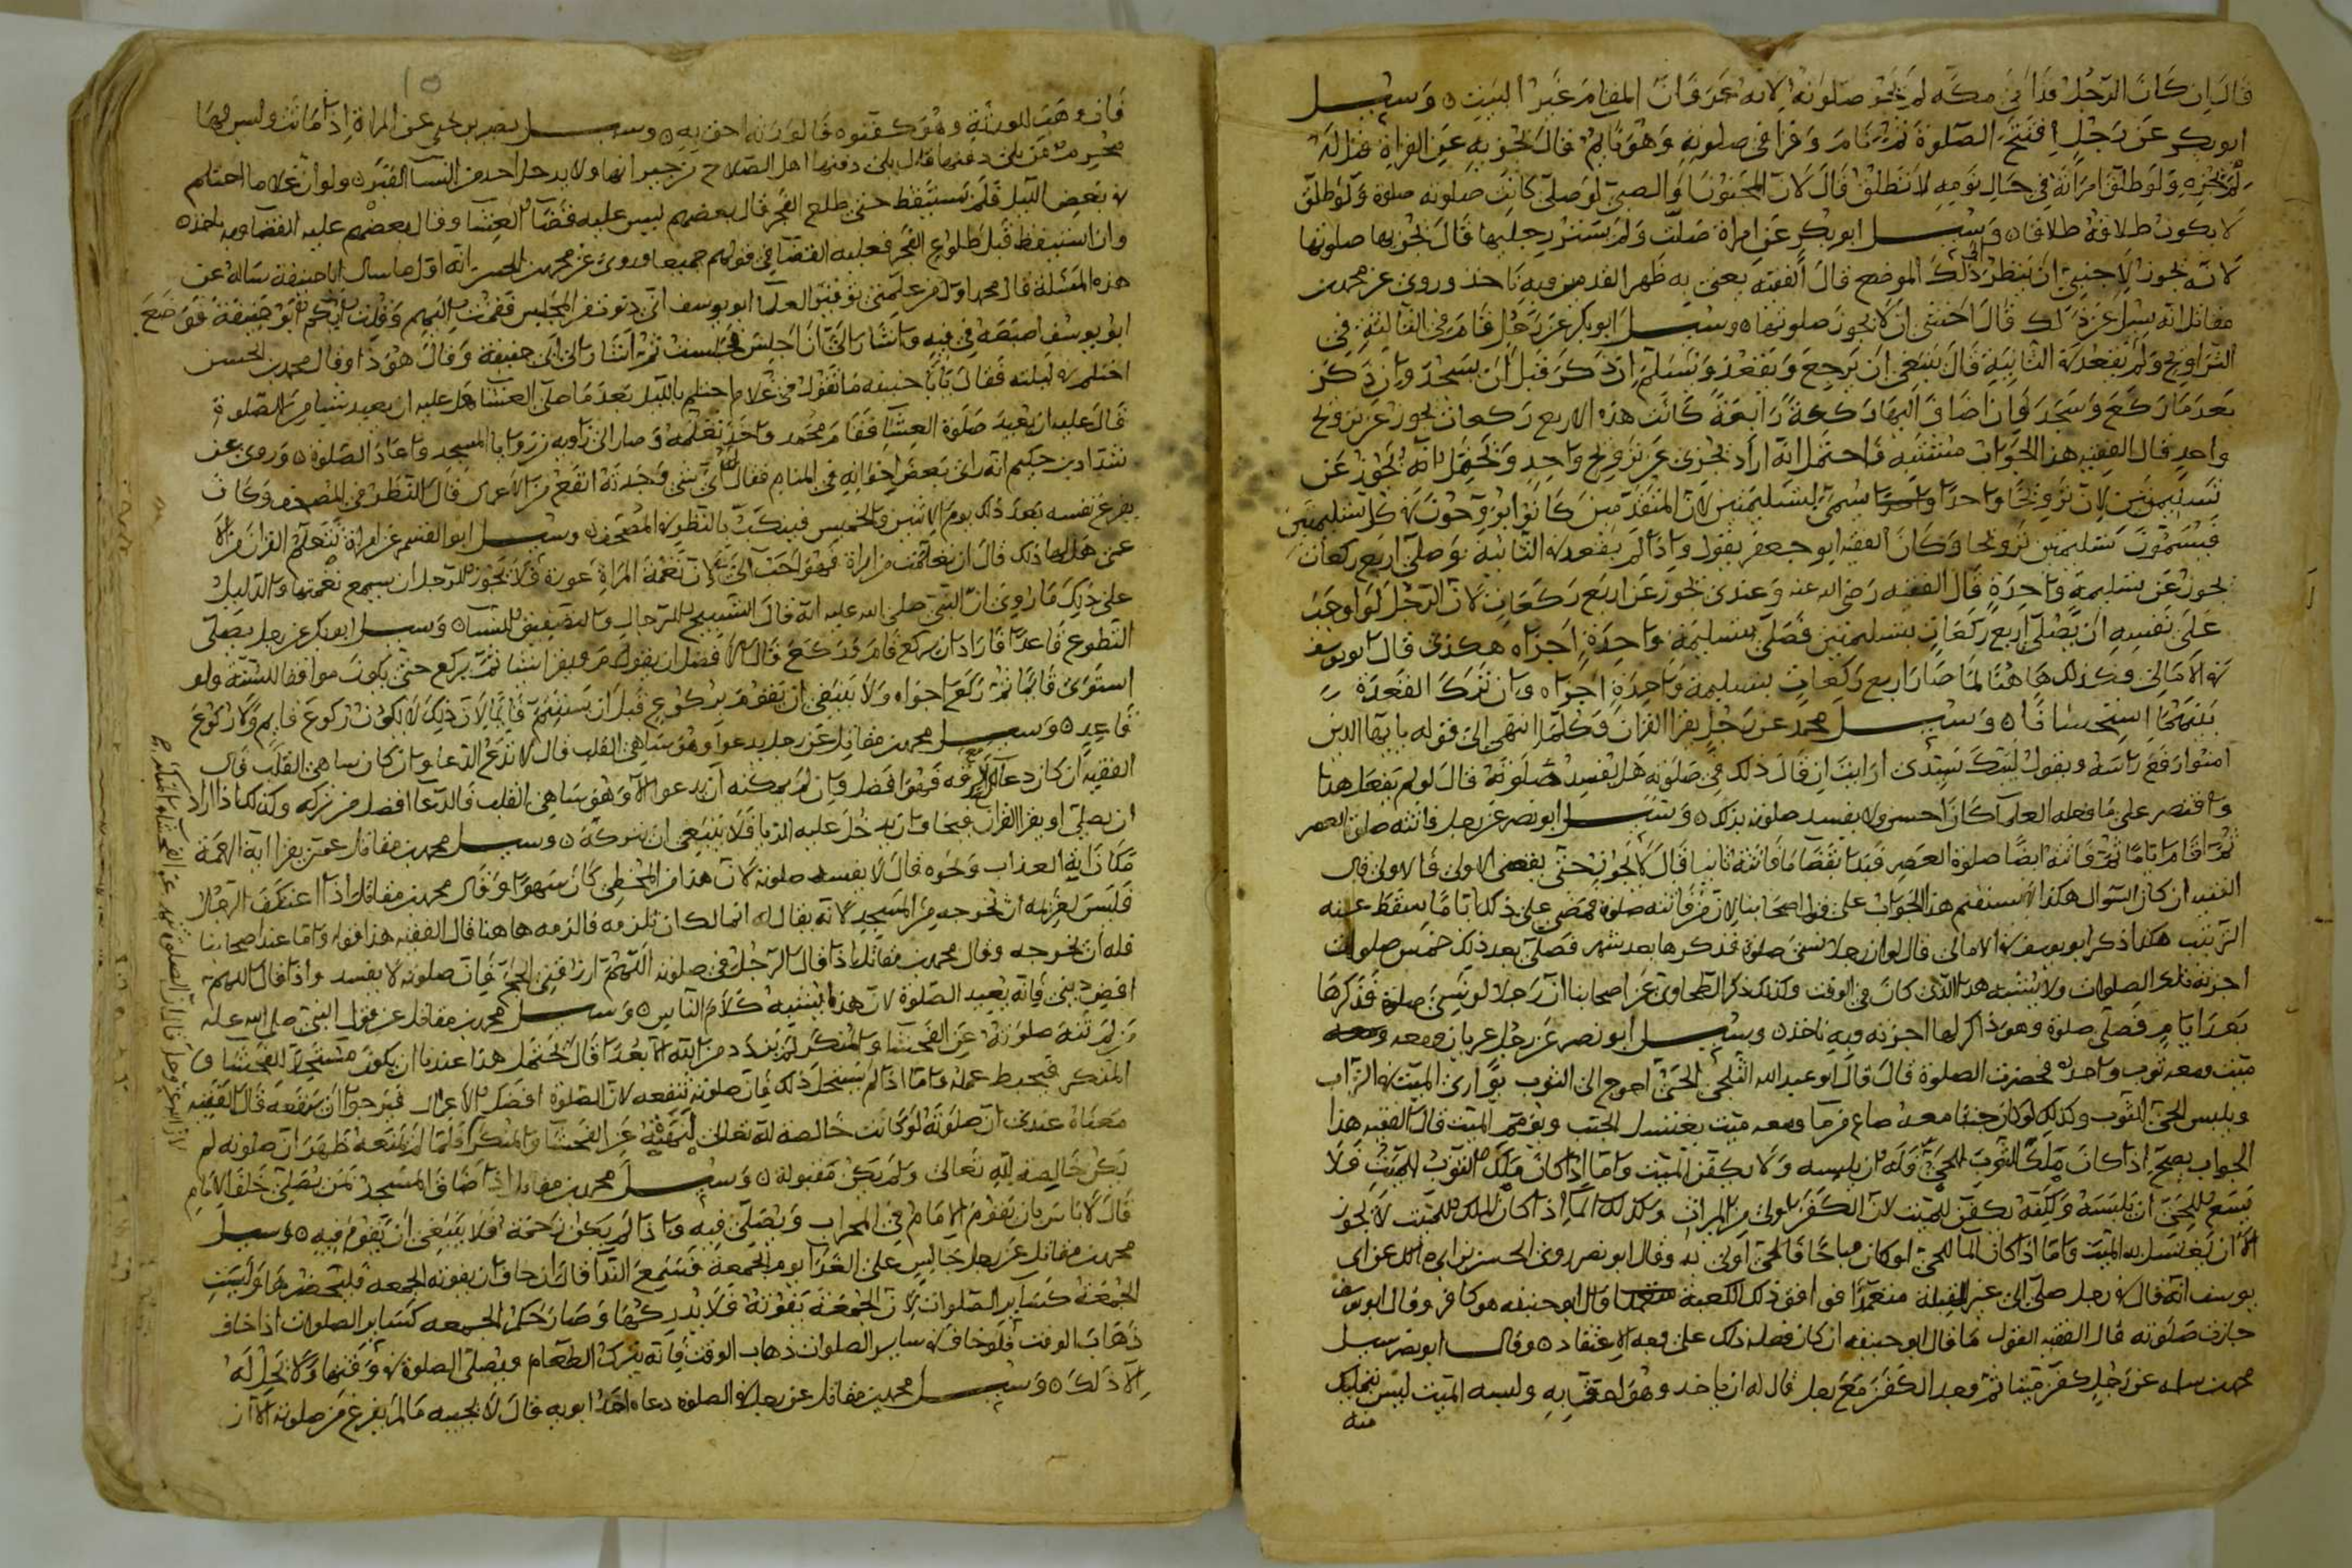 قال ان كان الرجل قد اتى مكة لم تجز صلوته لانه عرف ان المقام غير البيت ٥ وسئل
ابو بكر عن رجل افتتح الصلوة ثم نام وقرا في صلوته وهو نايم قال تجزيه عن القراة
لم تجزه ولو طلق امراته في حال نومه لا تطلق قال لان المجنون والصبي لو صلى كانت صلوته صلوة ولو طلق
لا يكون طلاقه طلاقا ٥ وسئل ابو بكر عن امراة صلت ولم تستر رجليها قال تجوز بها صلوتها
لانه يجوز للاجنبي ان ينظر الى ذلك الموضع قال الفقيه يعني به ظهر القدمين وبه ناخذ وروى عن محمد بن
مقاتل انه سئل عن ذلك قال اخشى ان لا تجوز صلوتها ٥ وسئل ابو بكر عن رجل قام في الثالثة في
التراويح ولم يقعد في الثانية قال ينبغي ان يرجع ويقعد ويسلم ان ذكر قبل ان يسجد وان ذكر
بعد ما ركع وسجد فان اضاف اليها ركعة رابعة كانت هذه الاربع ركعات تجوز عن ترويحة
واحد قال الفقيه هذا الجواب مشتبه فاحتمل انه اراد تجزي عن ترويح واحد ويحتمل انه يجوز عن
تسليمتين لان ترويحا واحدا سمي تسليمتين لان المتقدمين كانوا يروحون في كل تسليمتين
فيسمون تسليمتين ترويحا وكان الفقيه ابو جعفر يقول واذا لم يقعد في الثانية وصلى اربع ركعات
تجوز عن تسليمة واحدة قال الفقيه رضي الله عنه وعندي تجوز عن اربع ركعات لان الرجل لو اوجب
على نفسه ان يصلي اربع ركعات بتسليمتين فصلى بتسليمة واحدة اجزاه هكذى قال ابو يوسف
في الامالي وكذلك هاهنا لما صار اربع ركعات بتسليمة واحدة اجزاه وان ترك القعدة
بينهما استحسانا ٥ وسئل محمد عن رجل يقرا القران وكلما انتهى الى قوله يا ايها الذين
امنوا رفع راسه ويقول لبيك سيدي ارايت ان قال ذلك في صلوته هل يفسد صلوته قال لو لم يفعل هذا
واقتصر على ما فعله العلما كان احسن ولا يفسد صلوته بذلك ٥ وسئل ابو نصر عن رجل فاتته صلوة العصر
ثم اقام اياما ثم فاتته ايضا صلوة العصر
الفقيه ان كان السوال هكذا لا يستقيم هذا الجواب على قول اصحابنا لان من فاتته صلوة فمضى على ذلك اياما يسقط عنه
الترتيب هكذا ذكر ابو يوسف في الامالي قال لو ان رجلا نسي صلوة فذكرها بعد شهر فصلى بعد ذلك خمس صلوات
اجزته تلك الصلوات ولا يشبه هذا الذي كان في الوقت وكذلك ذكر الطحاوي عن اصحابنا ان رجلا لو نسي صلوة فذكرها
بعد ايام فصلى صلوة وهو ذاكر لها اجزته وبه ناخذ ٥ وسئل ابو نصر عن رجل عريان ومعه
ميت ومعه ثوب واحد فحضرت الصلوة قال قال ابو عبد الله الثلجي الحي احوج الى الثوب يوارى الميت في التراب
ويلبس الحي الثوب وكذلك لو كان جنبا معه صاع من ما ومعه ميت يغتسل الجنب ويؤمم الميت قال الفقيه هذا
الجواب يصح اذا كان ملك الثوب للحي فله ان يلبسه ولا يكفن الميت واما اذا كان ملك الثوب للميت فلا
يسع للحي ان يلبسه ولكنه يكفن للميت لان الكفن اولى من الميراث وكذلك الما اذا كان الملك للميت لا يجوز
الا ان يغتسل به الميت واما اذا كان الما للحي او كان مباحا فالحي اولى به وقال ابو نصر روى الحسن بن ابي مالك عن ابي
يوسف انه قال في رجل صلى الى غير القبلة متعمدا فوافق ذلك الكعبة قال ابو حنيفة هو كافر وقال ابو يوسف
جازت صلوته قال الفقيه القول ما قال ابو حنيفة ان كان فعله ذلك على وجه الاعتقاد ٥ وقال ابو نصر سئل
محمد بن سلمة عن رجل كفن ميتا ثم وجد الكفن مع رجل قال له ان ياخذ وهو احق به وليسه الميت ليس بتمليك
منه
١٥
فان وهب للورثة وهو كفنوه فالورثة احق به ٥ وسئل نصير بن يحيى عن المراة اذا ماتت وليس لها
محرم من يلي دفنها قال يلي دفنها اهل الصلاح من جيرانها ولا يدخل احد من النسا القبر ٥ ولو ان غلاما احتلم
في بعض الليل فلم يستيقظ حتى طلع الفجر قال بعضهم ليس عليه قضا العشا وقال بعضهم عليه القضا وبه ناخذ ٥
وان استيقظ قبل طلوع الفجر فعليه القضا في قولهم جميعا وروى عن محمد بن الحسن انه اول ما سال ابا حنيفة ساله عن
هذه المسئلة قال محمد
ابو يوسف اصبعه في فيه واشار الي ان اجلس فجلست ثم اشار الى ابي حنيفة وقال هو ذا وقال محمد بن الحسن
احتلم في ليلته فقال يا با حنيفة ما تقول في غلام احتلم بالليل بعد ما صلى العشا هل عليه ان يعيد شيا من الصلوة
قال عليه ان يعيد صلوة العشا فقام محمد واخذ نعلمه وصار الى زاوية من زوايا المسجد واعاد الصلوة ٥ وروى عن
شداد بن حكيم انه راى بعض اخوانه في المنام فقال له اي شي وجدته انفع من الاعمال قال النظر في المصحف وكان
يفرغ نفسه بعد ذلك يوم الاثنين والخميس بالنظر في المصحف ٥ وسئل ابو القسم عن امراة تتعلم القران من الاعمى
هل لها ذلك قال ان تعلمت من امراة فهو احب الي لان نغمة المراة عورة فلا يجوز للرجل ان يسمع نغمتها والدليل
على ذلك ما روي ان النبي صلى الله عليه انه قال التسبيح للرجال والتصفيق للنسا ٥ وسئل ابو بكر عن رجل يصلي
التطوع قاعدا فاراد ان يركع قام فركع قال الافضل ان يقوم ويقرا شيا ثم يركع حتى يكون موافقا للسنة ولو
استوى قايما ثم ركع اجزاه ولا ينبغي ان يقوم بركوع قبل ان يستتم قايما لان ذلك لا يكون ركوع قايم ولا ركوع
قاعد ٥ وسئل محمد بن مقاتل عن رجل يدعوا وهو ساهي القلب قال لا تدع الدعا وان كان ساهي القلب قال
الفقيه ان كان دعا مع الرقة فهو افضل وان لم يمكنه ان يدعوا الا وهو ساهي القلب فالدعا افضل من تركه وكذلك اذا اراد
ان يصلي او يقرا القران فيخاف ان يدخل عليه الريا فلا ينبغي ان يتركه ٥ وسئل محمد بن مقاتل عمن يقرا اية الرحمة
مكان اية العذاب ونحوه قال لا يفسد صلوته لان هذا من المخطي كان سهوا وقال محمد بن مقاتل اذا اعتكف الرجل
فليس لغريمه ان يخرجه من المسجد لانه يقال له انما لك ان تلزمه فالزمه هاهنا قال الفقيه هذا قوله واما عند اصحابنا
فله ان يخرجه وقال محمد بن مقاتل اذا قال الرجل في صلوته اللهم ارزقني الحج فان صلوته لا يفسد واذا قال اللهم
اقض ديني فانه يعيد الصلوة لان هذا يشبه كلام الناس ٥ وسئل محمد بن مقاتل عن قول النبي صلى الله عليه
من لم تنه صلوته عن الفحشا والمنكر لم يزدد من الله الا بعدا قال يحتمل هذا عندنا ان يكون مستحلا للفحشا و
المنكر فيحبط عمله واما اذا لم يستحل ذلك فان صلوته تنفعه لان الصلوة افضل الاعمال فيرجوا ان ينفعه قال الفقيه
معناه عندي ان صلوته لو كانت خالصة لله تعالى لنهته عن الفحشا والمنكر فلما لم تمنعه ظهر ان صلوته لم
يكن خالصة لله تعالى ولم يكن مقبولة ٥ وسئل محمد بن مقاتل اذا ضاق المسجد لمن يصلي خلف الامام
قال لا باس بان يقوم الامام في المحراب ويصلي فيه واذا لم يكن زحمة فلا ينبغي ان يقوم فيه ٥ وسئل
محمد بن مقاتل عن رجل جالس على الغدا يوم الجمعة فسمع الندا قال ان خاف ان يفوته الجمعة فليحضرها وليست
الجمعة كساير الصلوات لان الجمعة تفوته فلا يدركها وصار حكم الجمعه كساير الصلوات اذا خاف
ذهاب الوقت فلو خاف في ساير الصلوات ذهاب الوقت فانه يترك الطعام ويصلي الصلوة في وقتها ولا يحل له
الا ذلك ٥ وسئل محمد بن مقاتل عن رجل في الصلوة دعاه احد ابويه قال لا يجيبه ما لم يفرغ من صلوته الا ان